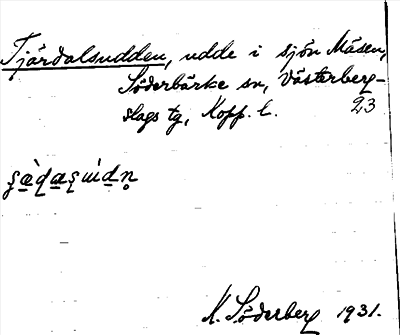 Tjärdalsudden, udde i sjön Mäsen,
Söderbärke sn, Västerberg-
slags tg, Kopp. l. 23
K. Söderberg 1931.